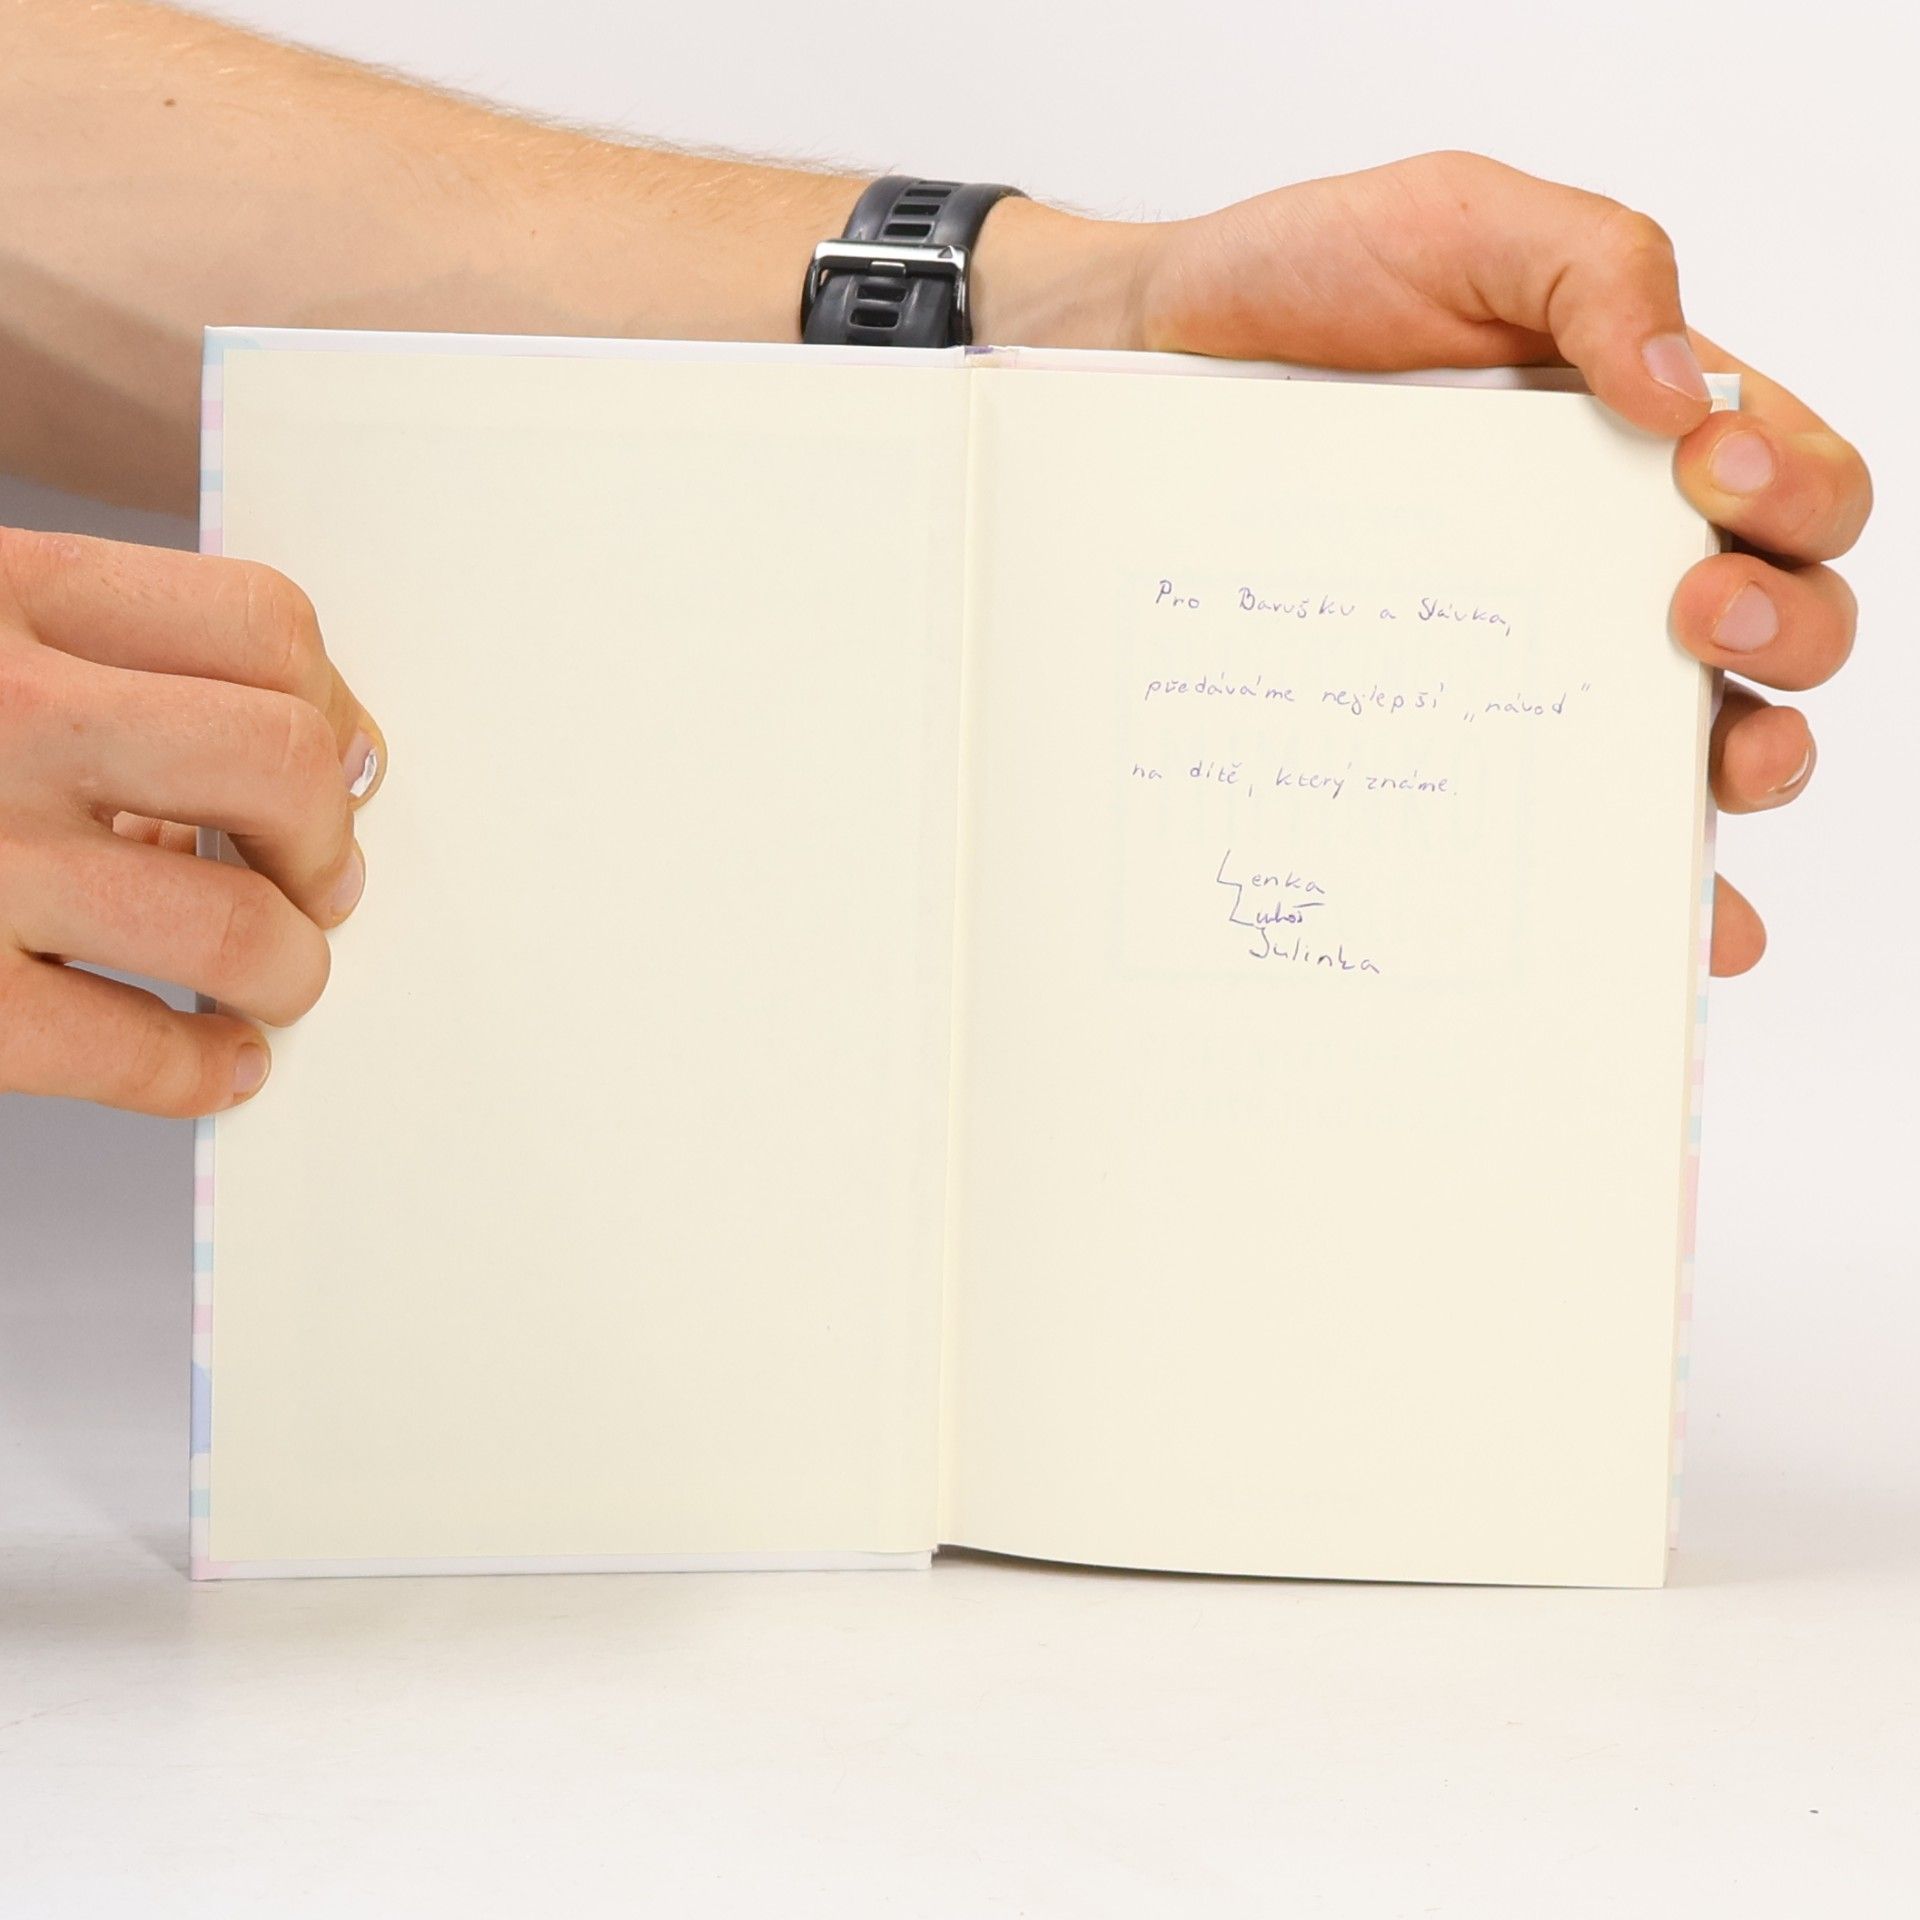 Pro Barušku a Slávka,
předáváme nejlepší „návod“
na dítě, který známe.
Lenka
Luboš
Julinka